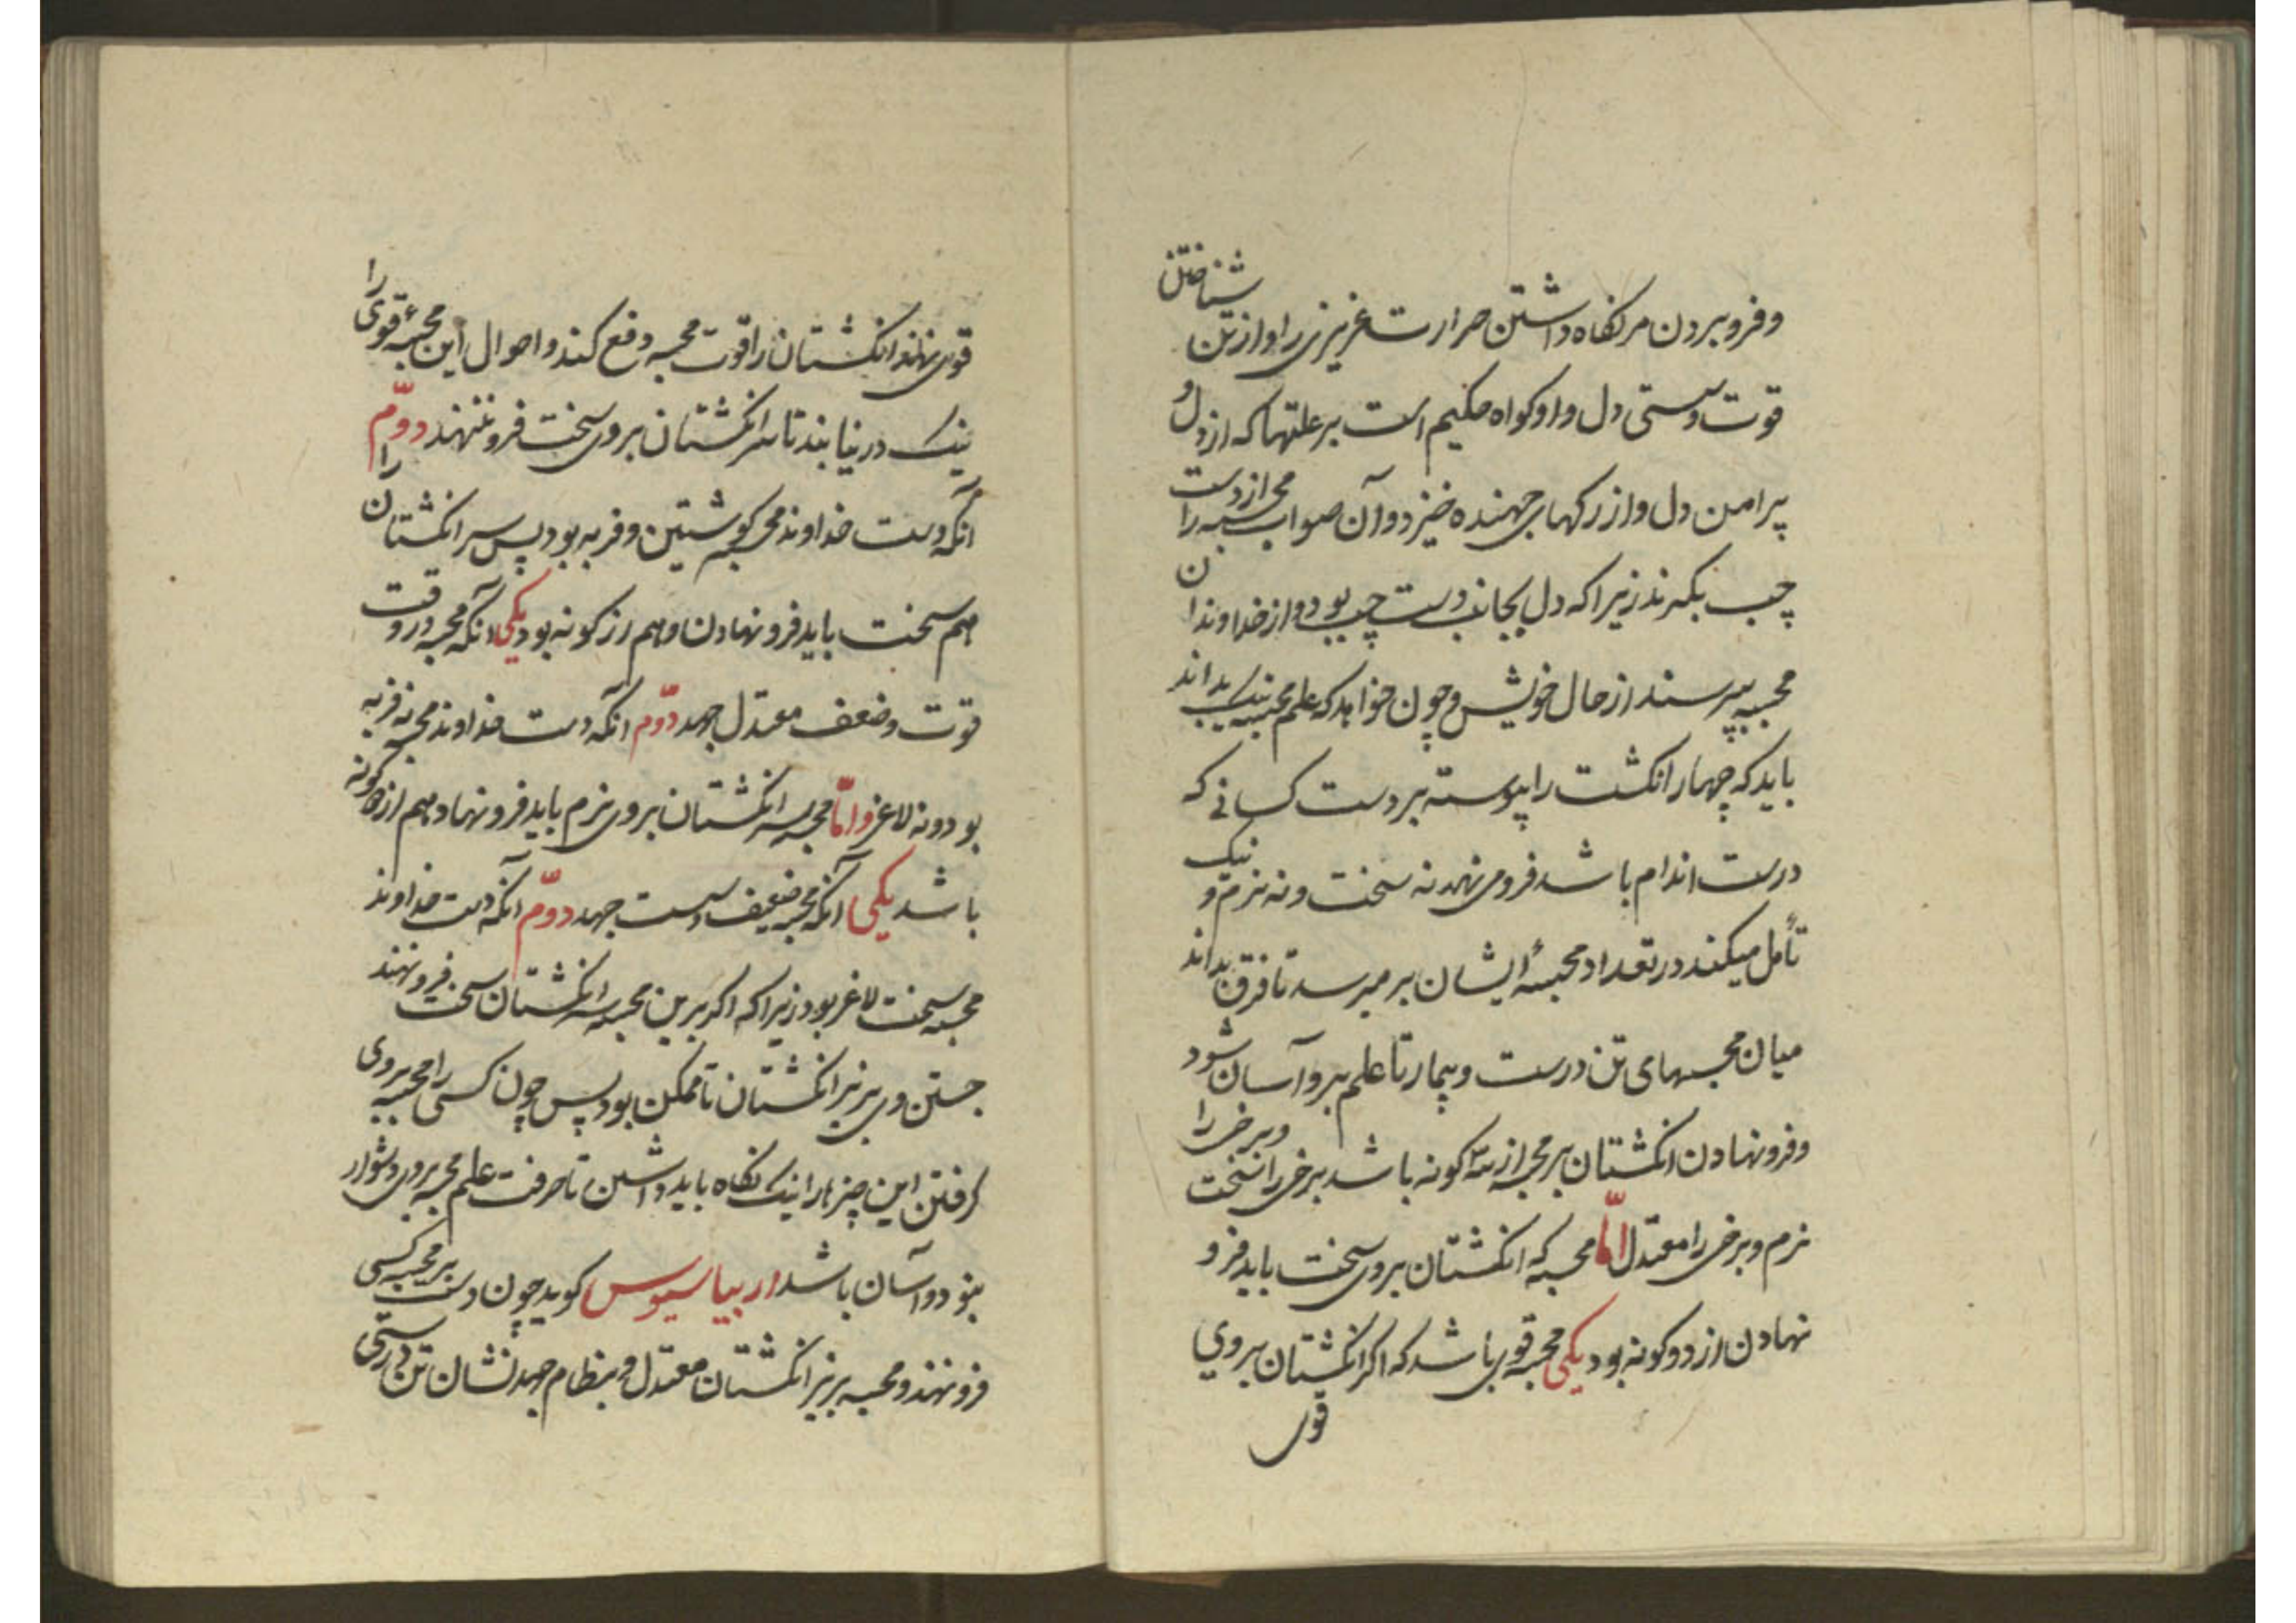 و فرو بردن مر نکاه داشتن حرارت غریزی را و از تن شناختن
قوت و سستی دل و او کواه حکیم است بر علتها که از دل و
پرامن دل و از رکهای جهنده خیزد و آن صواب محبسه را از دست
چپ بکیرند زیرا که دل بجانب دست چپ بود و از خداوندان
محبسه بپرسند از حال خویش و چون خواهد که علم محبسه نیک بداند
باید که چهار انکشت را پیوسته بر دست کسانی که
درست اندام باشد فرو می نهد نه سخت و نه نرم و نیک
تأمل میکند در تعداد محبسهٔ ایشان بر میرسد تا فرق بداند
میان محبسهای تن درست و بیمار تا علم برو آسان شود
و فرو نهادن انکشتان بر محبسه از سه کونه باشد برخی را سخت و برخی را
نرم و برخی را معتدل امّا محبسه که انکشتان بروی سخت باید فرو
نهادن از دو کونه بود یکی محبسه قوی باشد که اکر انکشتان بروی
قوی
قوی نهند انکشتان را قوت محبسه دفع کند و احوال این محبسهٔ قوی را
نیک در نیابند تا سر انکشتان بروی سخت فرو ننهند دوّم
آنکه دست خداوند محبسه کوشتین و فربه بود پس سر انکشتان را
هم سخت باید فرو نهادن و هم از کونه بود یکی آنکه محبسه در وقت
قوّت و ضعف معتدل جهد دوّم آنکه دست خداوند محبسه نه فربه
بود و نه لاغر و امّا محبسه سر انکشتان بروی نرم باید فرو نهاد هم از دو کونه
باشد یکی آنکه محبسه ضعیف و سست جهد دوّم آنکه دست خداوند
محبسه سخت لاغر بود زیرا که اکر برین محبسه سر انکشتان سخت فرو نهند
جستن وی بر زیر انکشتان نا ممکن بود پس چون کسی را محبسه بروی
کرفتن این چیزها را نیک نکاه باید داشتن تا معرفت علم محبسه بروی دشوار
نبود و آسان باشد اریباسیوس کوید چون دست بر محبسه کسی
فرو نهند و محبسه بر زیر انکشتان معتدل و بنظام جهد نشان تن درستی